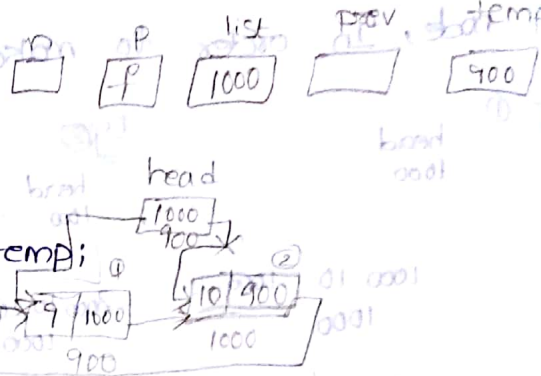 n p list prev temp
p 1000 900
head
1000
900
temp; ① ②
9 1000 10 900
900 1000